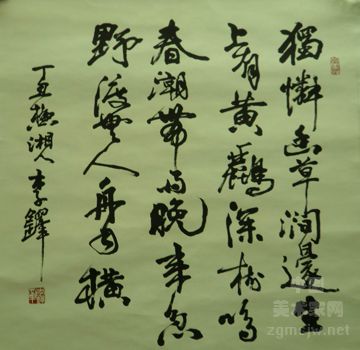 獨憐幽草澗邊生
上有黃鸝深樹鳴
春潮帶雨晚來急
野渡無人舟自橫
丁丑湘人李鐸